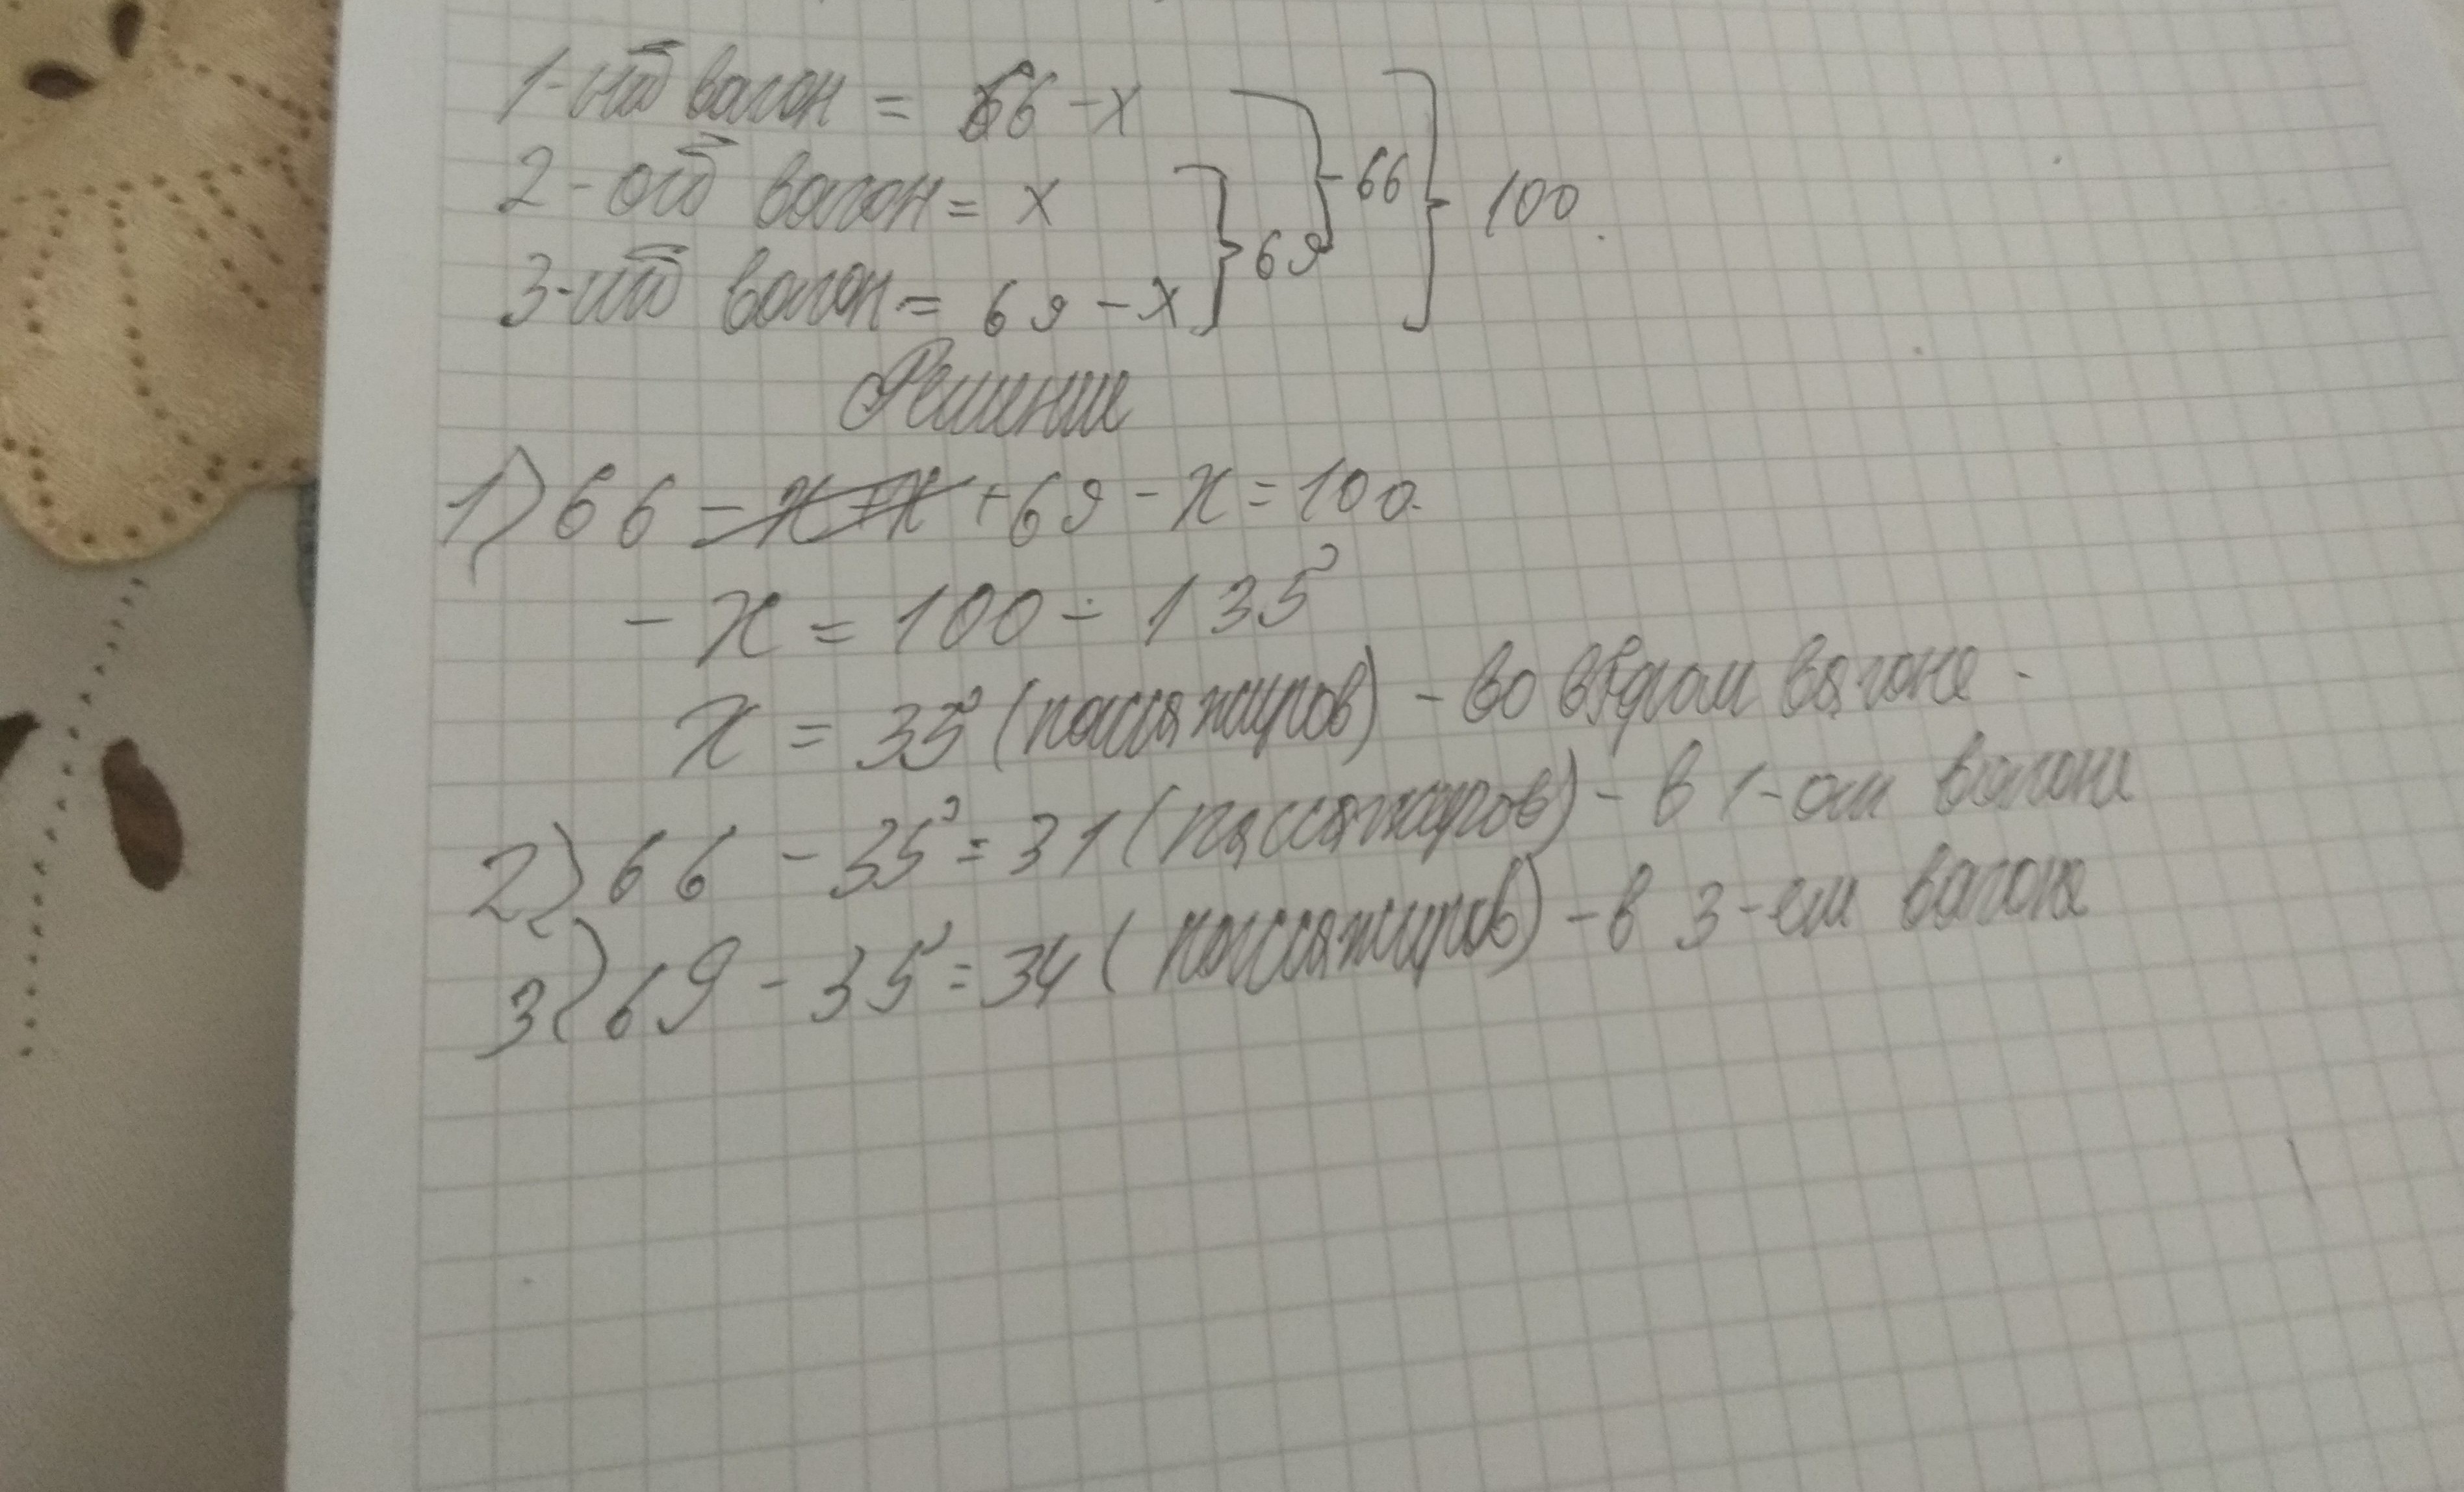 1-ый вагон = 66 - x
2-ой вагон = x
3-ий вагон = 69 - x } 69 } 66 } 100.
Решение
1) 66 - x + x + 69 - x = 100.
- x = 100 - 135
x = 35 (пассажиров) - во втором вагоне.
2) 66 - 35 = 31 (пассажиров) - в 1-ом вагоне
3) 69 - 35 = 34 (пассажиров) - в 3-ем вагоне